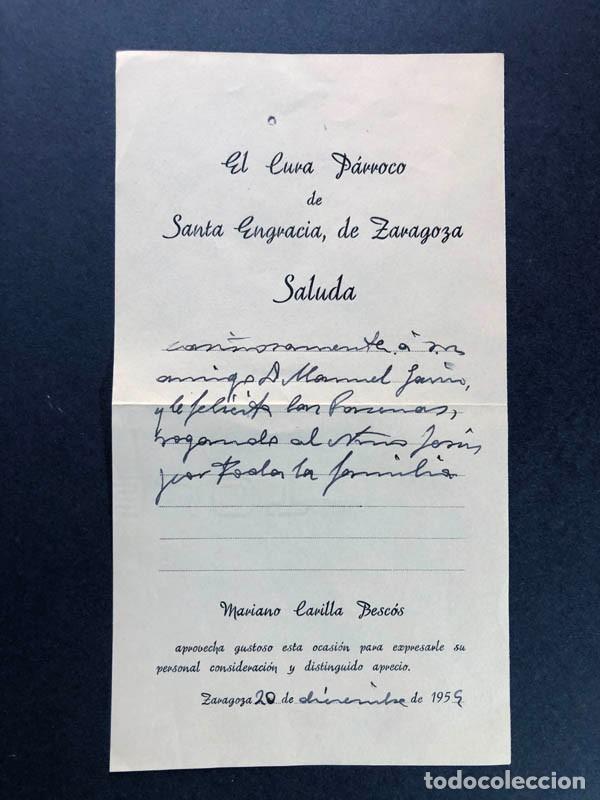 El Cura Párroco
de
Santa Engracia, de Zaragoza
Saluda
cariñosamente á su
amigo D. Manuel
y le felicita las Pascuas,
rogando al Niño Jesús
por toda la familia
Mariano Carilla Bescós
aprovecha gustoso esta ocasión para expresarle su
personal consideración y distinguido aprecio.
Zaragoza 20 de diciembre de 195
todocoleccion
todocoleccion.net